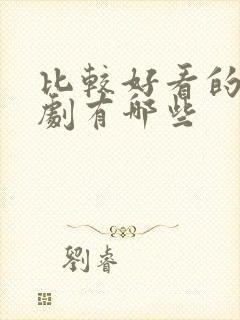 比較好看的
劇有哪些
劉睿